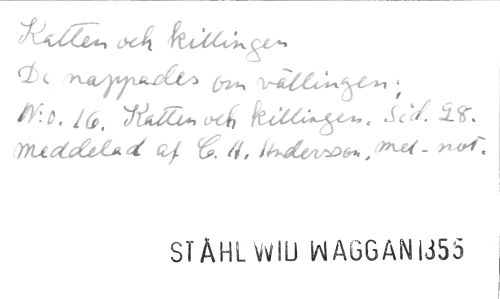 Katten och killingen
De nappades om vällingen;
N:o. 16. Katten och killingen. Sid. 28.
meddelad af C. H. Andersson, mel-not.
STÅHL WID WAGGAN 1355